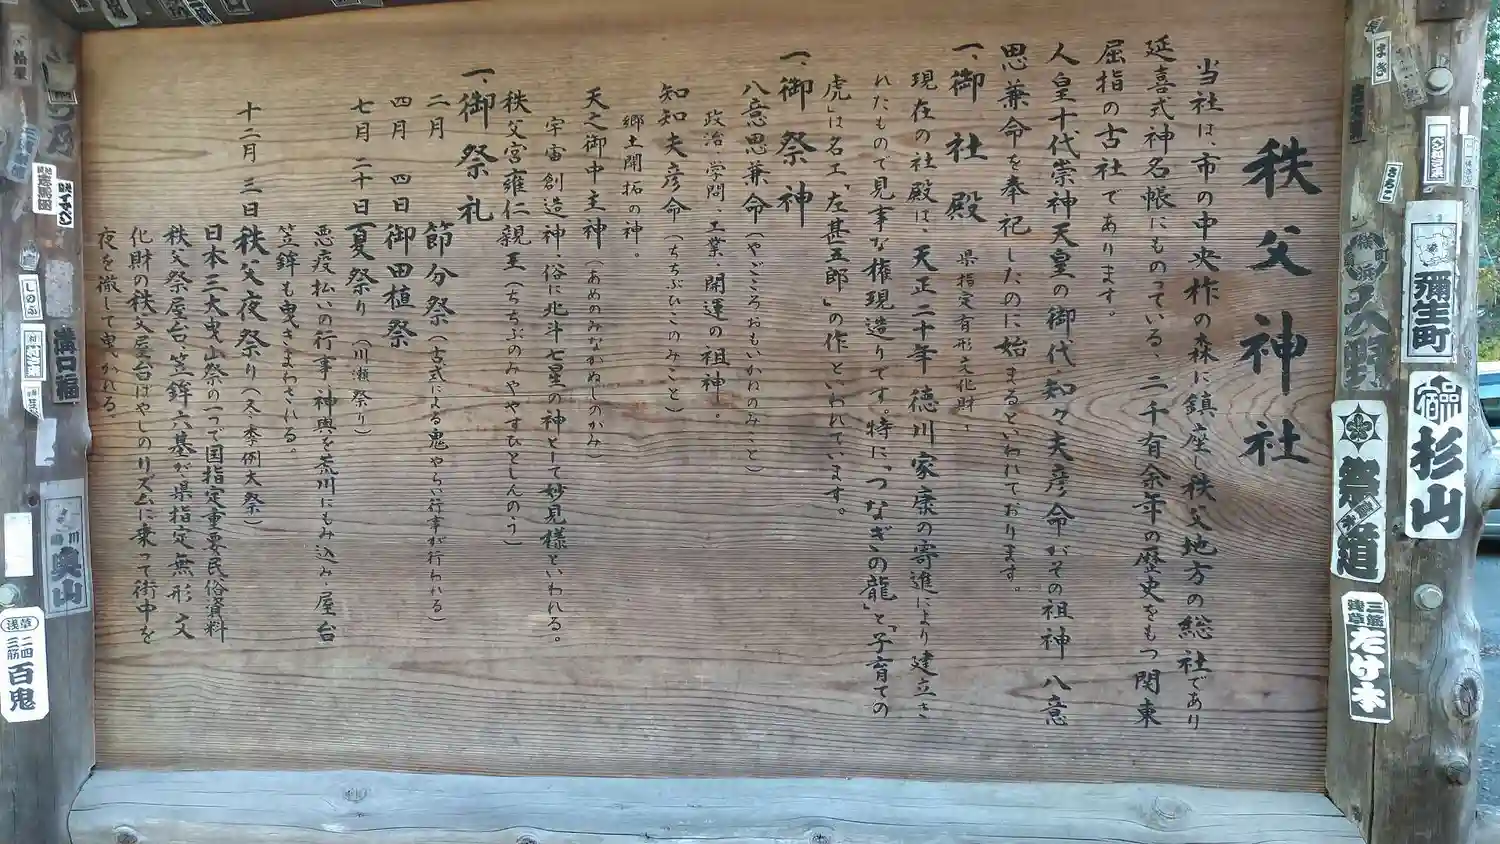 秩父神社
当社は、市の中央柞の森に鎮座し秩父地方の総社であり
延喜式神名帳にものっている、二千有余年の歴史をもつ関東
屈指の古社であります。
人皇十代崇神天皇の御代、知々夫彦命がその祖神八意
思兼命を奉祀したのに始まるといわれております。
一、御社殿 県指定有形文化財、
現在の社殿は、天正二十年徳川家康の寄進により建立さ
れたもので見事な権現造りです。特に「つなぎの龍」と「子育ての
虎」は名工「左甚五郎」の作といわれています。
一、御祭神
八意思兼命(やごころおもいかねのみこと)
政治、学問、工業、開運の祖神。
知知夫彦命(ちちぶひこのみこと)
郷土開拓の神。
天之御中主神(あめのみなかぬしのかみ)
宇宙創造神、俗に北斗七星の神として妙見様といわれる。
秩父宮雍仁親王(ちちぶのみややすひとしんのう)
一、御祭礼
二月 節分祭(古式による鬼やらい行事が行われる)
四月 四日 御田植祭
七月 二十日 夏祭り(川瀬祭り)
悪疫払いの行事、神輿を荒川にもみ込み、屋台
笠鉾も曳きまわされる。
十二月 三日 秩父夜祭り(冬季例大祭)
日本三大曳山祭の一つで国指定重要民俗資料
秩父祭屋台、笠鉾六基が県指定無形文
化財の秩父屋台ばやしのリズムに乗って街中を
夜を徹して曳かれる。
まき
さちこ
彌生町
杉山
祭道
三筋
浅草
たけ本
大野
しのぶ
溝口福
奥山
浅草
三筋
二四
百鬼